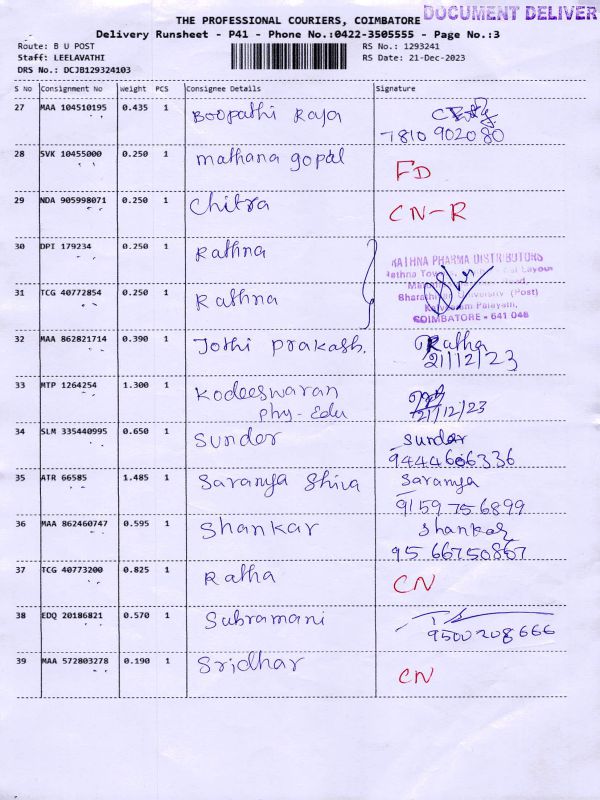 DOCUMENT DELIVER
THE PROFESSIONAL COURIERS, COIMBATORE
Delivery Runsheet - P41 - Phone No.:0422-3505555 - Page No.:3
Route: B U POST
Staff: LEELAVATHI
DRS No.: DCJB129324103
RS No.: 1293241
RS Date: 21-Dec-2023
S No Consignment No Weight PCS Consignee Details Signature
27 MAA 104510195 0.435 1 Boopathi Raja
7810 902080
28 SVK 10455000 0.250 1 mathana gopal FD
29 NDA 905998071 0.250 1 Chitra CN-R
30 DPI 179234 0.250 1 Rathna
RATHNA PHARMA DISTRIBUTORS
31 TCG 40772854 0.250 1 Rathna
University (Post)
COIMBATORE - 641 046
32 MAA 862821714 0.390 1 Jothi prakash. Ratha
21/12/23
33 MTP 1264254 1.300 1 Kodeeswaran
phy-Edu 21/12/23
34 SLM 335440995 0.650 1 Sunder Sunder
9444606336
35 ATR 66585 1.485 1 Saranya Shiva Saranya
9159756899
36 MAA 862460747 0.595 1 Shankar Shankar
9566750867
37 TCG 40773200 0.825 1 Ratha CN
38 EDQ 20186821 0.570 1 Subramani
9500208666
39 MAA 572803278 0.190 1 Sridhar CN